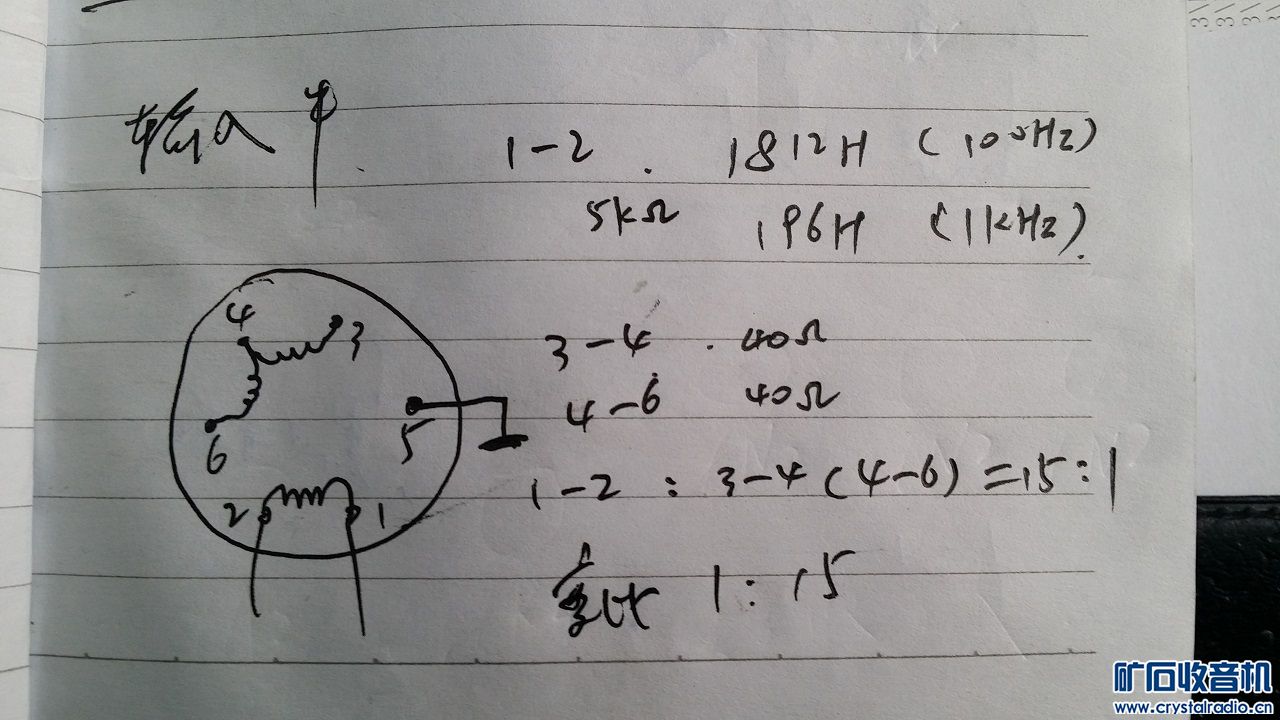 输入牛
1-2 . 1812H (100Hz)
5kΩ 196H (1kHz).
4
3
3-4 . 40Ω
4-6 40Ω
6
5
1-2 : 3-4 (4-6) = 15:1
2
1
变比 1:15
矿石收音机
www.crystalradio.cn